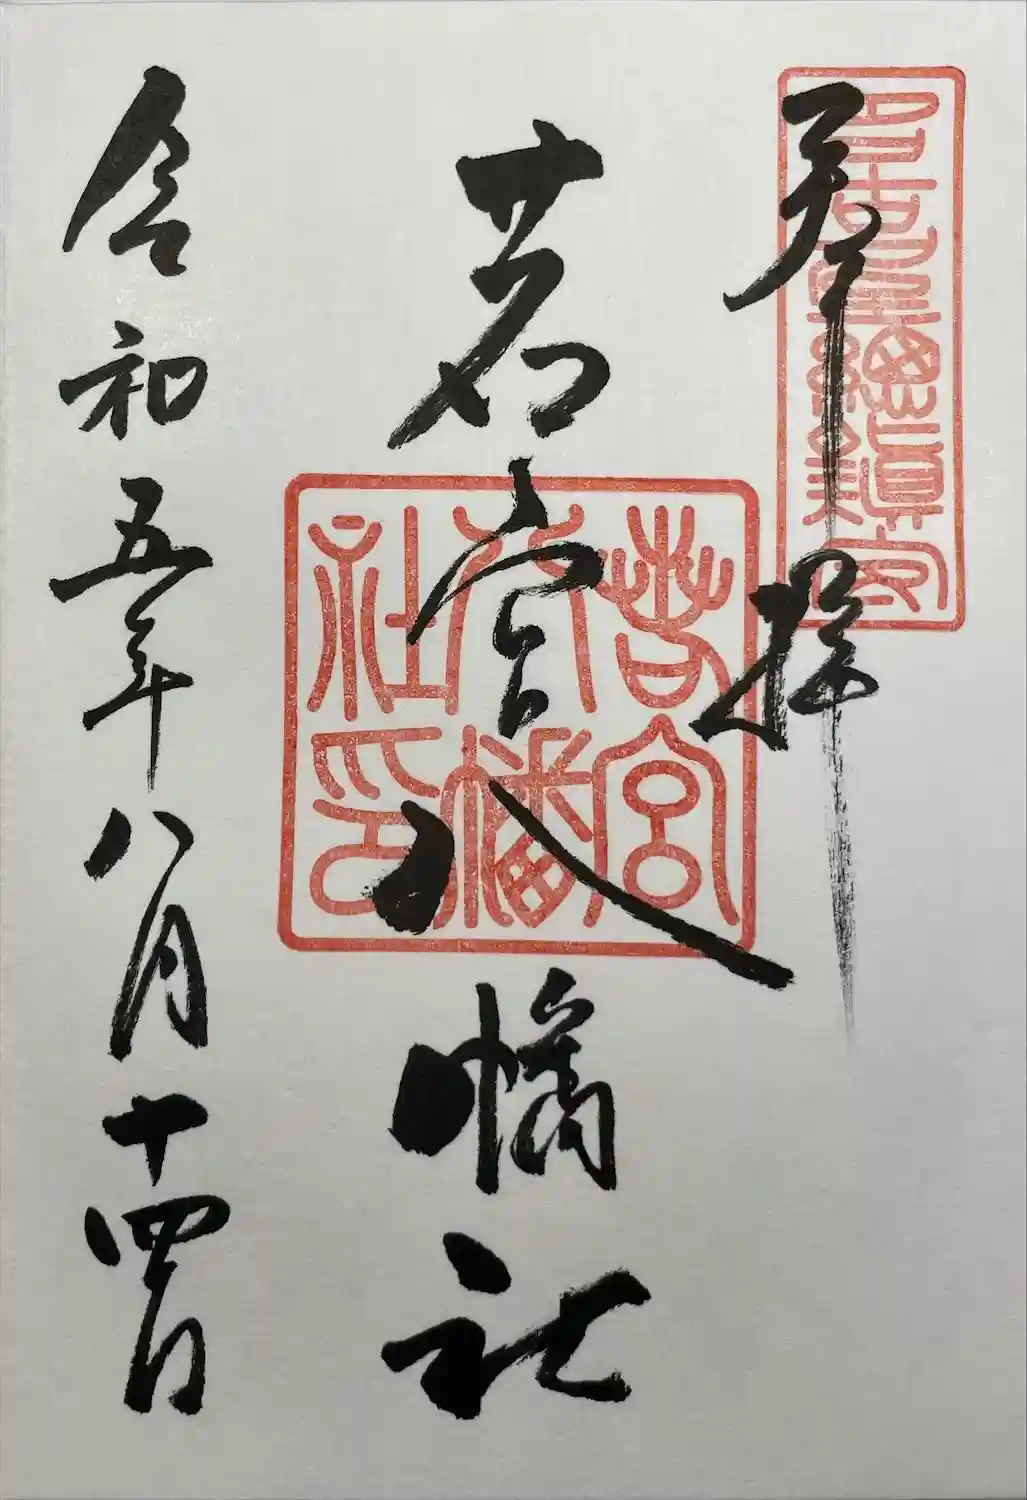 奉拝
名古屋総鎮守
若宮八幡社
若宮八幡社印
令和五年八月十四日